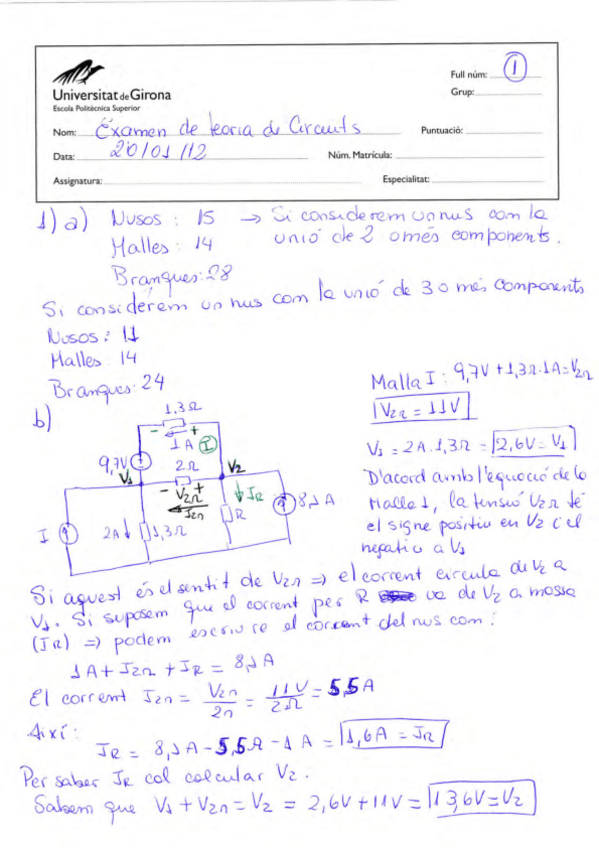 Universitat de Girona
Escola Politècnica Superior
Full núm: 1
Grup:
Nom: Examen de teoria de Circuits
Puntuació:
Data: 20/01/12
Núm. Matrícula:
Assignatura:
Especialitat:
1) a) Nusos : 15 → Si considerem un nus com la
unió de 2 o més components.
Malles : 14
Branques: 28
Si considerem un nus com la unió de 3 o més components
Nusos : 11
Malles : 14
Branques: 24
b)
1,3Ω
- +
1A I
9,7V
2Ω
V1
V2
- V2Ω +
I2Ω
IR
R
8,1A
I
2A
1,3Ω
Malla I : 9,7V + 1,3Ω·1A = V2Ω
V2Ω = 11V
V1 = 2A·1,3Ω = 2,6V = V1
D'acord amb l'equació de la
Malla 1, la tensió V2Ω té
el signe positiu en V2 i el
negatiu a V1
Si aquest és el sentit de V2Ω ⇒ el corrent circula de V2 a
V1. Si suposem que el corrent per R va de V2 a massa
(IR) ⇒ podem escriure el corrent del nus com :
1A + I2Ω + IR = 8,1A
El corrent I2Ω = V2Ω / 2Ω = 11V / 2Ω = 5,5A
Així:
IR = 8,1A - 5,5A - 1A = 1,6A = IR
Per saber IR cal calcular V2 :
Sabem que V1 + V2Ω = V2 = 2,6V + 11V = 13,6V = V2